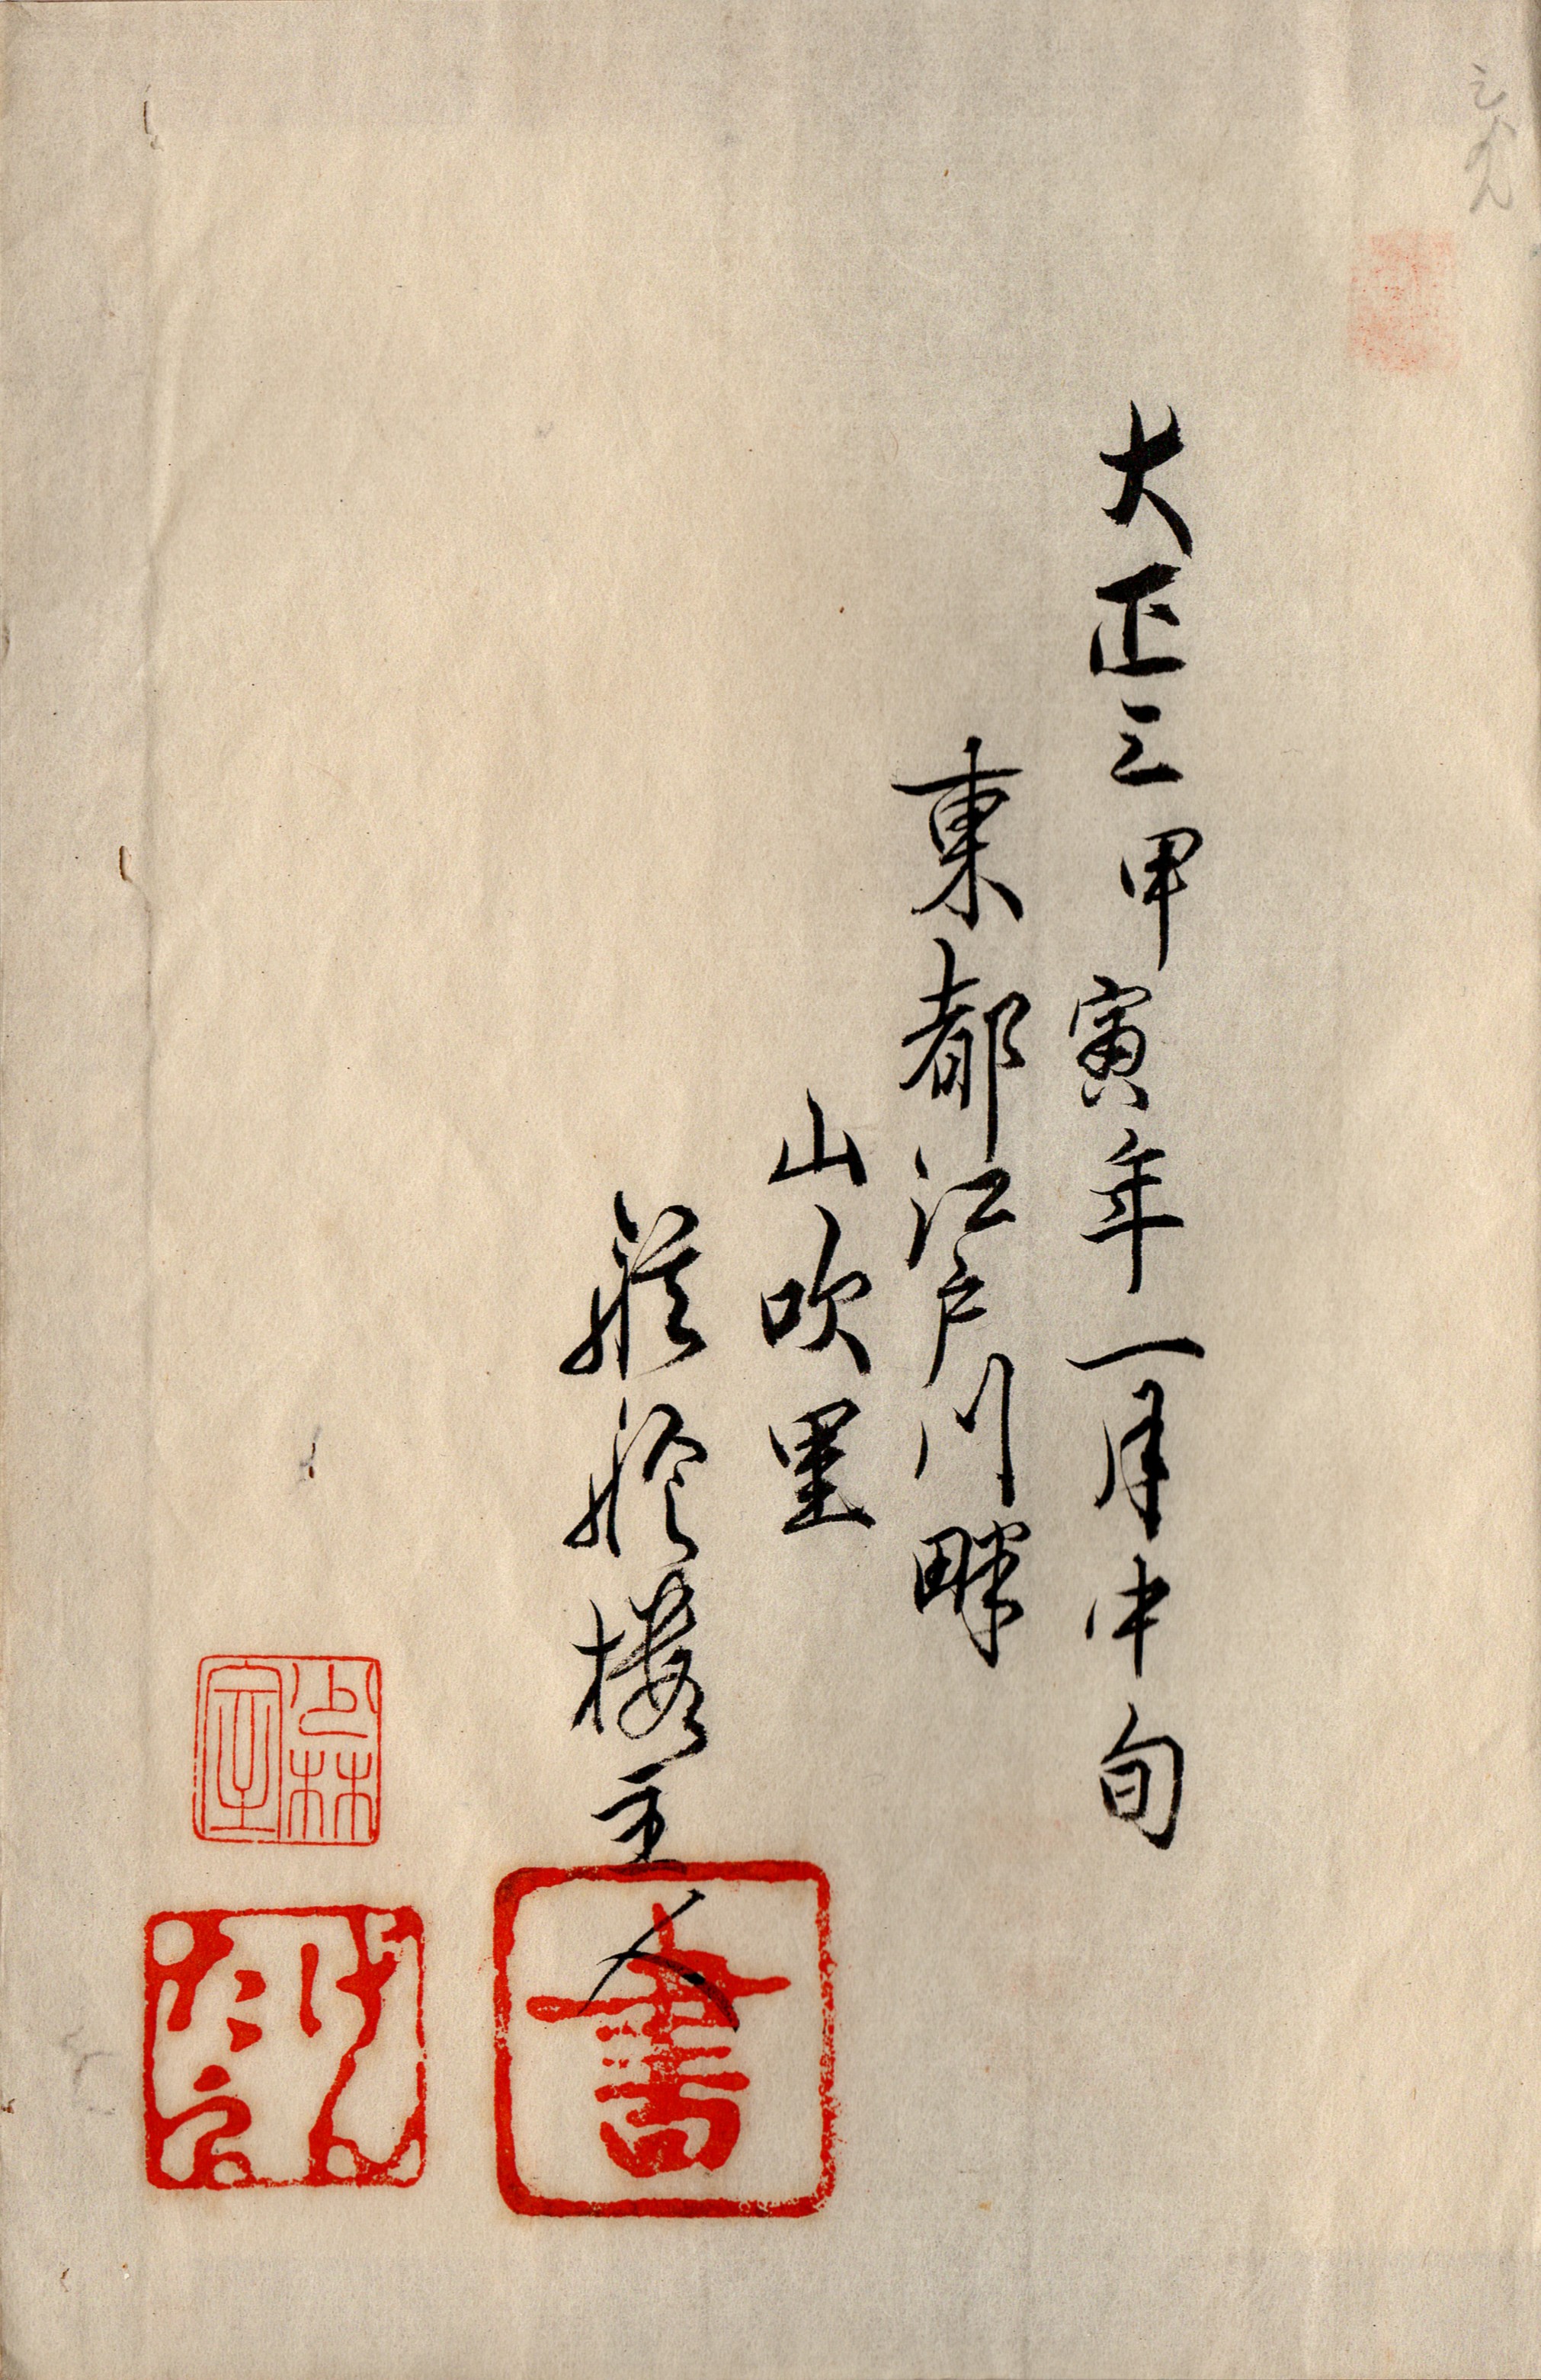 大正三甲寅年一月中旬
東都江戸川畔
山吹里
楼主人
書